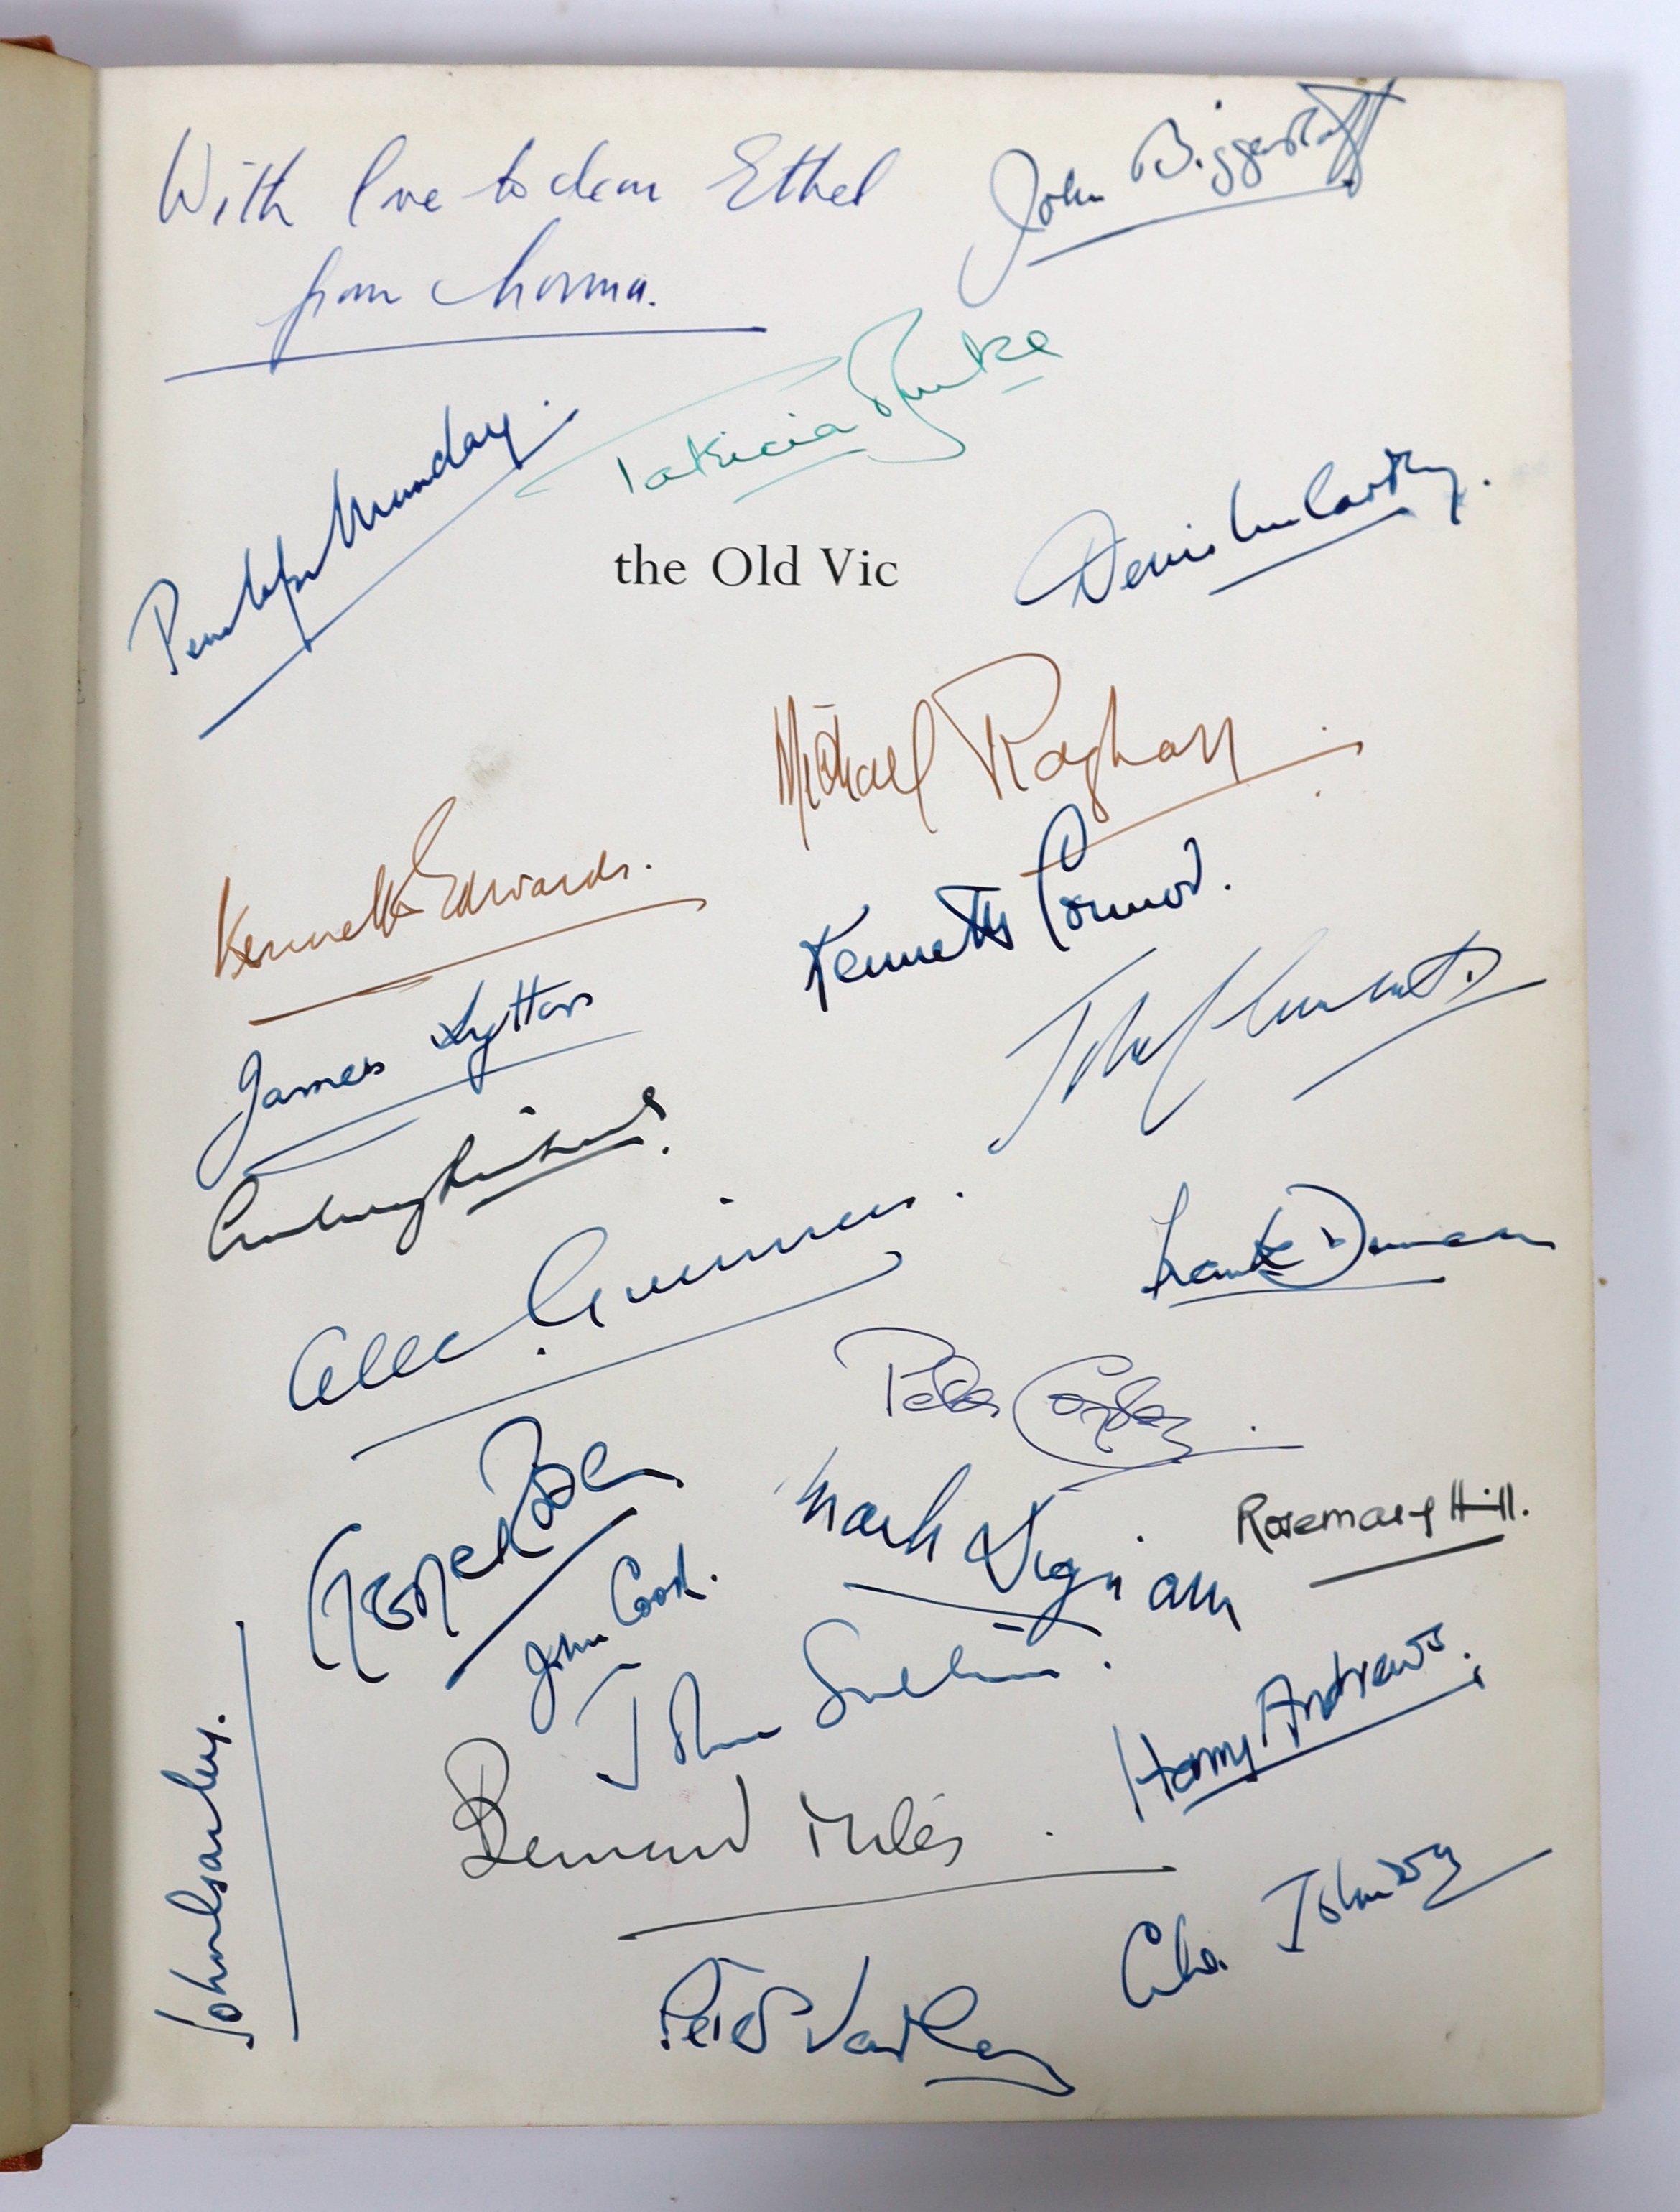 With love to dear Ethel
from Norma.
John Biggerstaff
Patricia Burke
Penelope Munday.
the Old Vic
Denis McCarthy.
Michael Raghan
Kenneth Edwards.
Kenneth Connor.
James Lytton
John Clements
Alec Guinness.
Frank Duncan
Peter Copley.
George Rose
Mark Dignam
Rosemary Hill.
John Cook.
John Sullivan.
Harry Andrews.
Bernard Miles.
John Garley.
Peter Varley